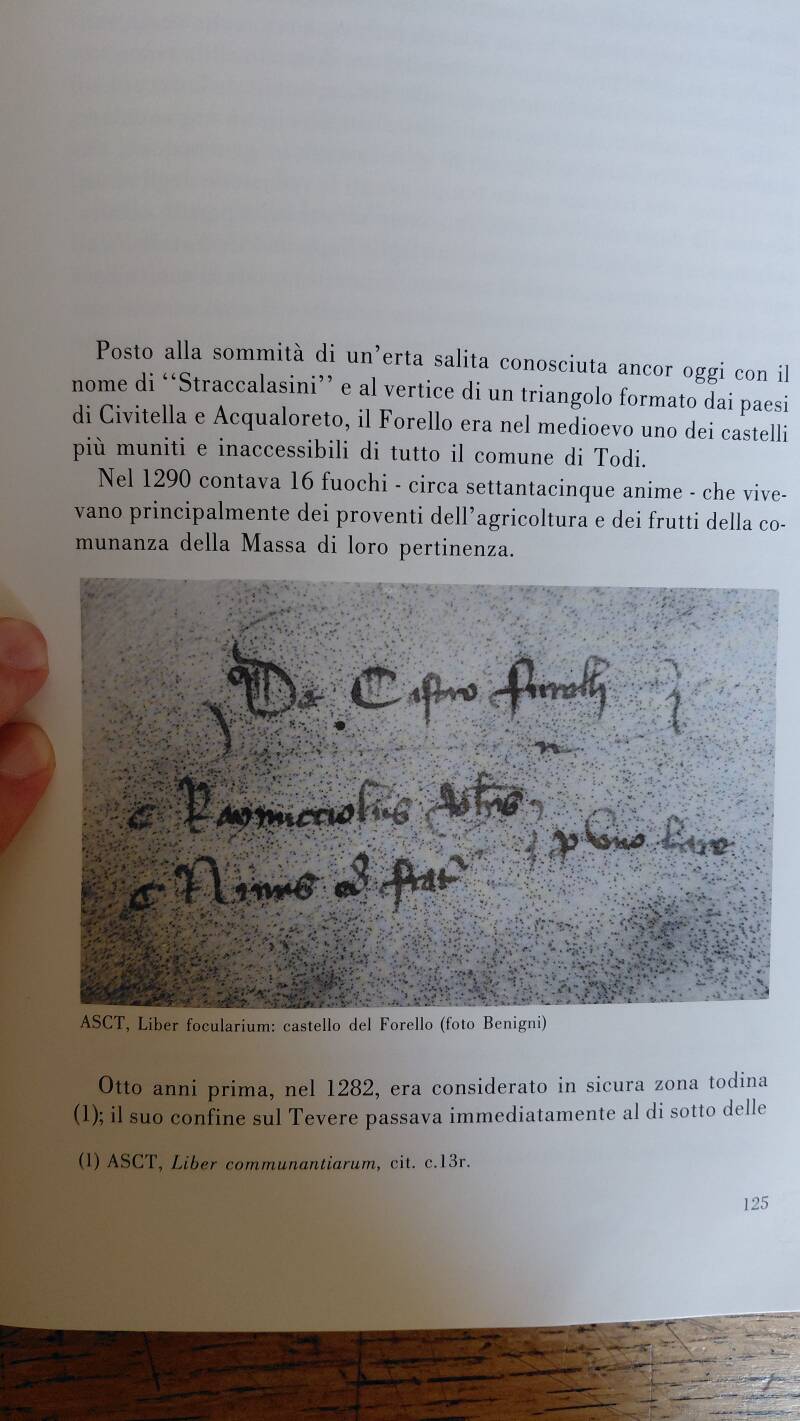 Posto alla sommità di un'erta salita conosciuta ancor oggi con il
nome di “Straccalasini” e al vertice di un triangolo formato dai paesi
di Civitella e Acqualoreto, il Forello era nel medioevo uno dei castelli
più muniti e inaccessibili di tutto il comune di Todi.
Nel 1290 contava 16 fuochi - circa settantacinque anime - che vive-
vano principalmente dei proventi dell'agricoltura e dei frutti della co-
munanza della Massa di loro pertinenza.
De Castro
ASCT, Liber focularium: castello del Forello (foto Benigni)
Otto anni prima, nel 1282, era considerato in sicura zona todina
(1); il suo confine sul Tevere passava immediatamente al di sotto delle
(1) ASCT, Liber communantiarum, cit. c.13r.
125